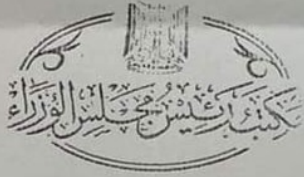 مكتب رئيس مجلس الوزراء